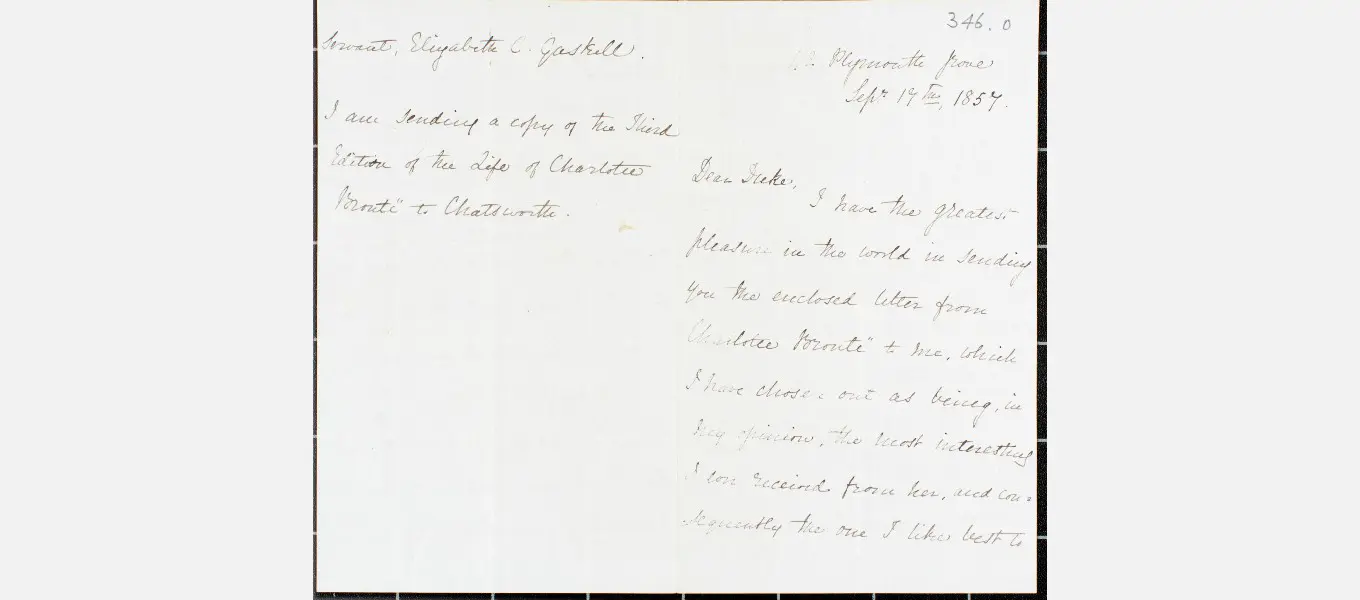 servant, Elizabeth C. Gaskell.
I am sending a copy of the Third
Edition of the Life of Charlotte
Brontë to Chatsworth.
346.0
Plymouth Grove
Sept 17th, 1857.
Dear Duke,
I have the greatest
pleasure in the world in sending
you the enclosed letter from
Charlotte Brontë to me, which
I have chosen out as being, in
my opinion, the most interesting
I received from her, and con=
sequently the one I like best to